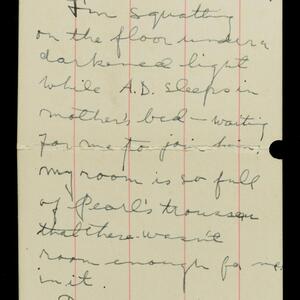 I'm squatting
on the floor under a
darkened light
while A.D. sleeps in
mother's bed — waiting
for me to join him;
my room is so full
of Pearl's trousseau
that there wasn't
room enough for me
in it.